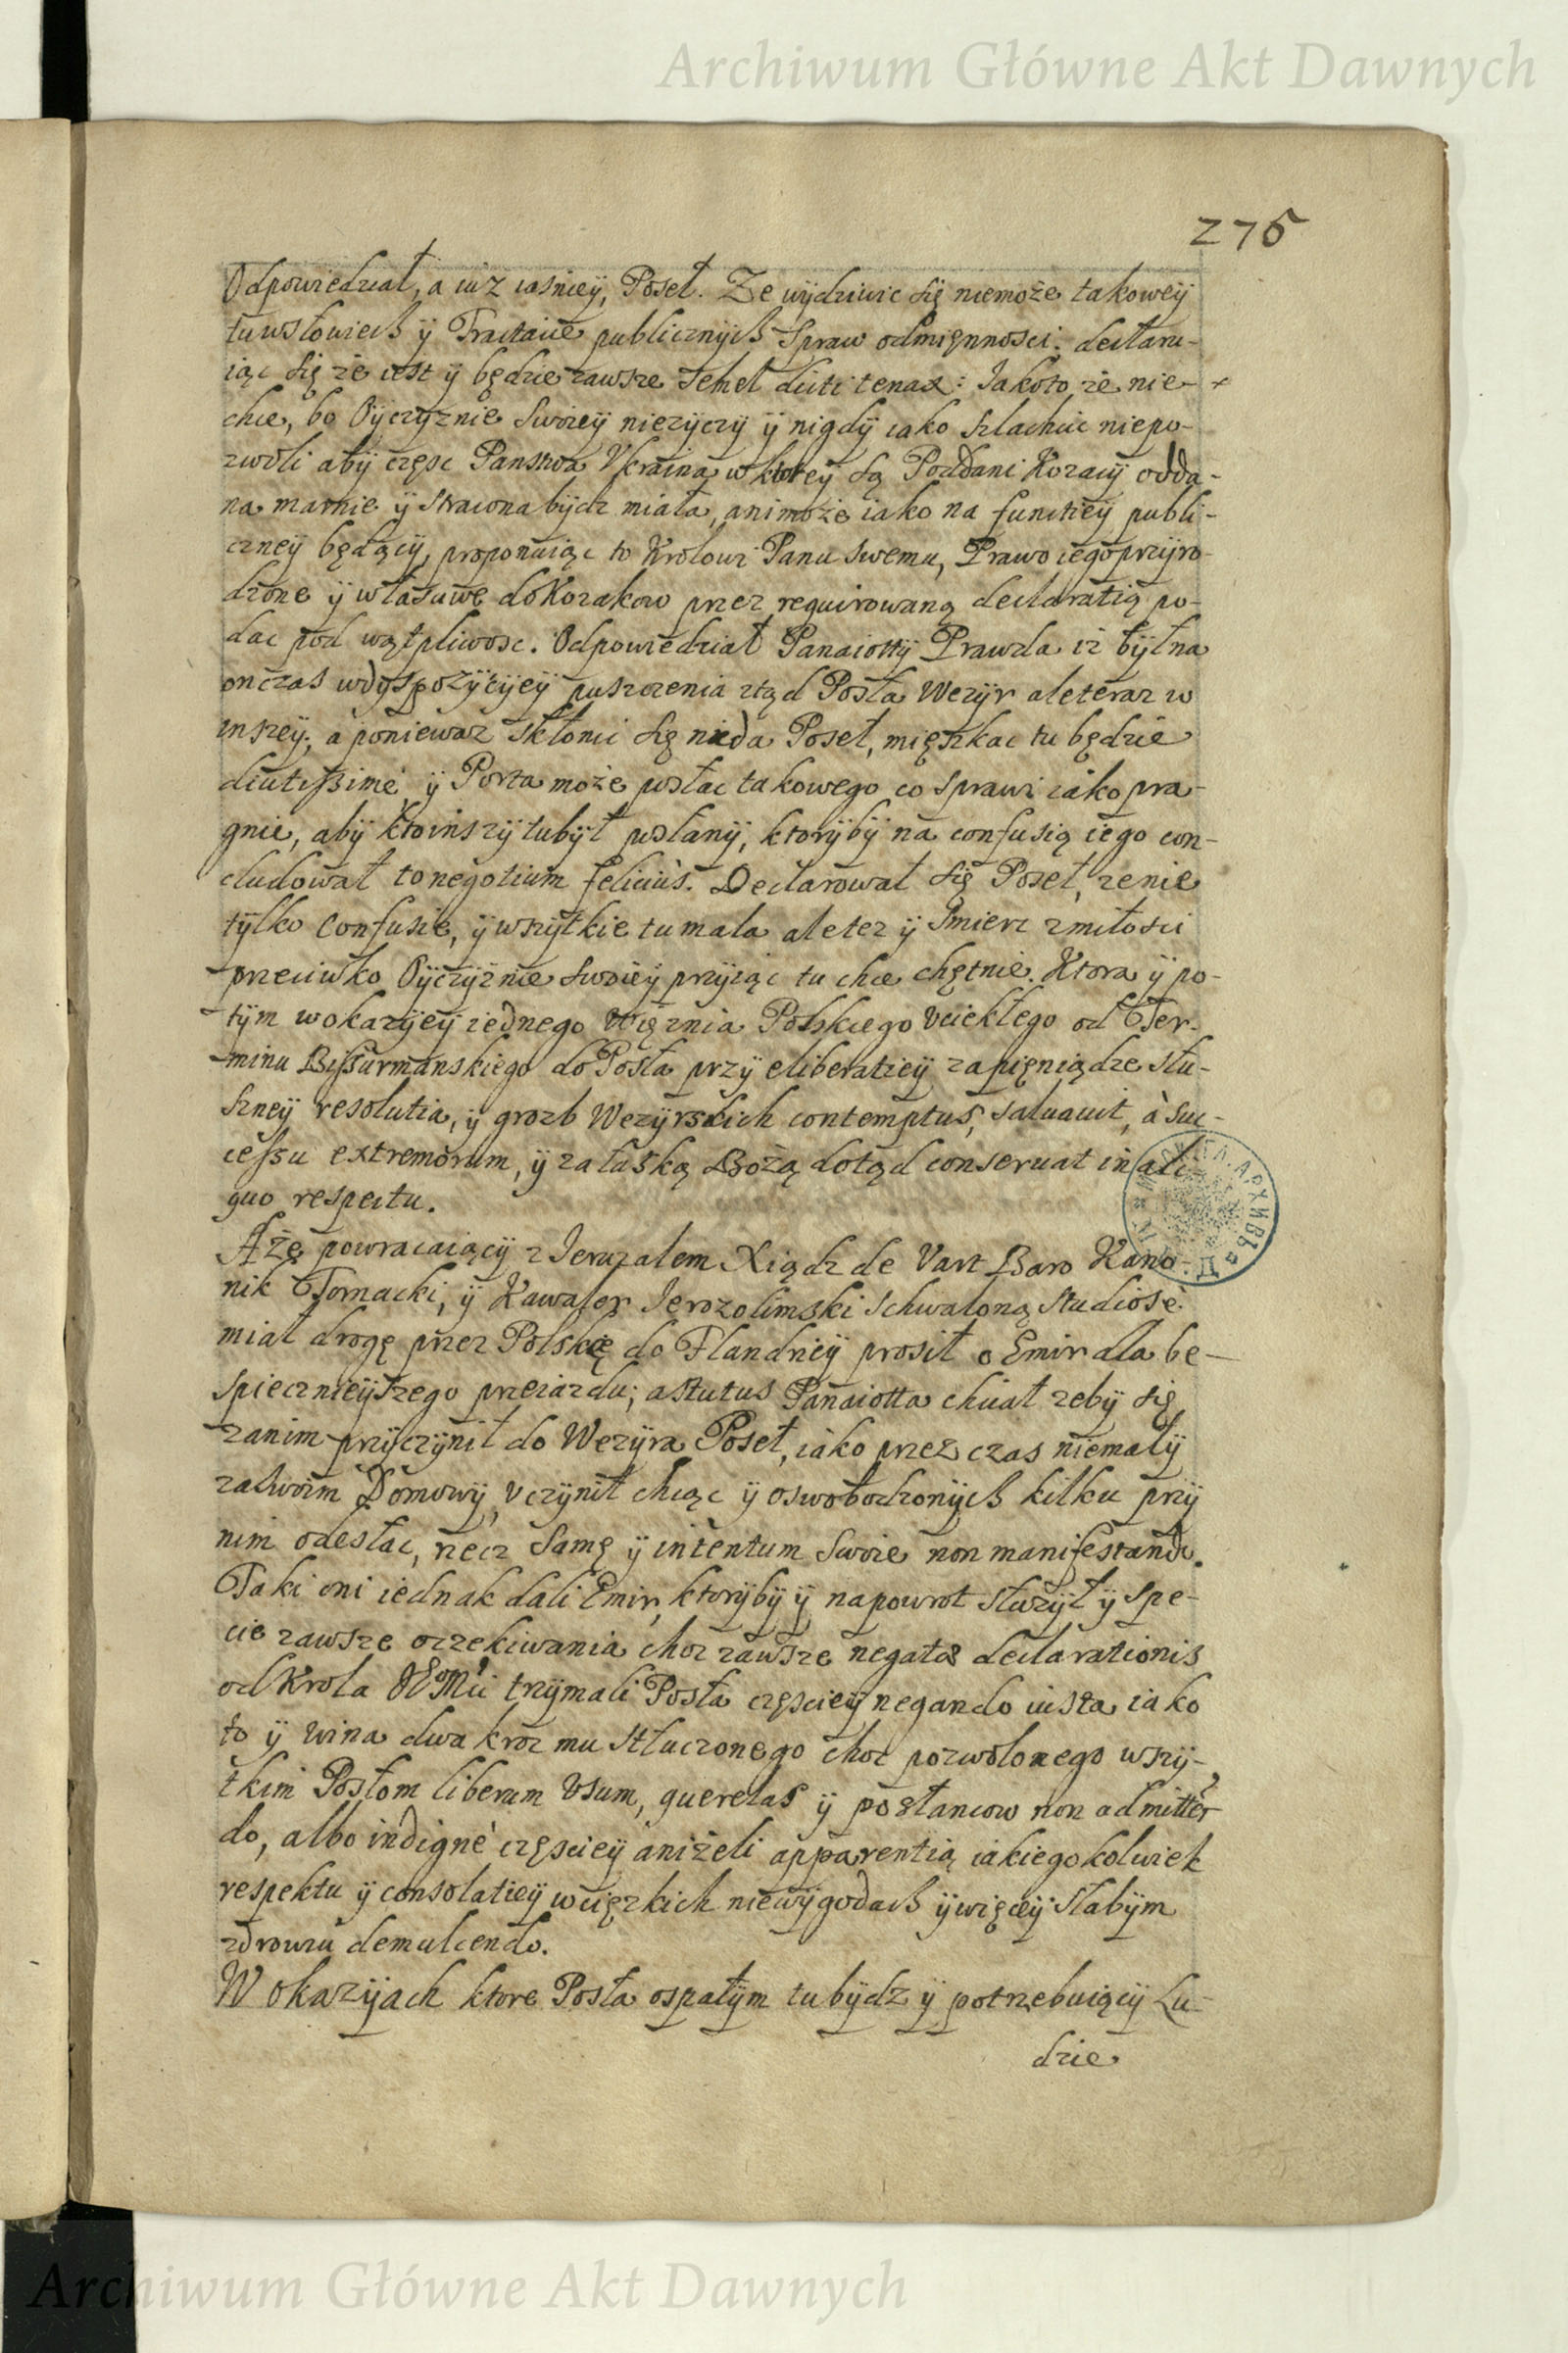 Archiwum Główne Akt Dawnych
275
Odpowiedział, a iuż iasniey, Poseł. Ze wÿdziwic się niemoże takoweÿ
tu w słowiech ÿ Tractacie publicznÿch Spraw odmięnnosci: declaru-
iąc się że iest ÿ będzie zawsze semel dicti tenax: Jakoto że nie-
chce, bo Oÿczÿznie Swoieÿ nieżÿczÿ ÿ nigdÿ iako szlachcic niepo-
zwoli abÿ częsc Panstwa Vkraina w ktoreÿ są Poddani Kozacÿ odda-
na marnie ÿ stracona bÿdz miała, ani może iako na functieÿ publi-
czneÿ będącÿ, proponuiąc to Krolowi Panu swemu, Prawo iego przÿro-
dzone ÿ własciwe do Kozakow przez requirowaną declaratią po-
dac pod wątpliwosc. Odpowiedział Panaiottÿ Prawda iż bÿł na
onczas w dÿspozÿcÿeÿ puszczenia ztąd Posła Wezÿr ale teraz w
inszeÿ, a ponieważ skłonic się nieda Poseł, mięszkac tu będzie
diutissimè ÿ Porta może posłac takowego co sprawi iako pra-
gnie, abÿ kto inszÿ tu bÿł posłanÿ, ktorÿbÿ na confusią iego con-
cludował to negotium feliciùs. Declarował się Poseł, że nie
tÿlko Confusie, ÿ wszÿtkie tu mala ale też ÿ smierc z miłosci
przeciwko Oÿczÿznie Swoieÿ przÿiąc tu chce chętnie. Ktora ÿ po-
tÿm w okazÿeÿ iednego Więznia Polskiego vciekłego od Ter-
minu Bissurmanskiego do Posła przÿ eliberatieÿ za pięniądze słu-
szneÿ resolutia, ÿ grozb Wezÿrskich contemptus, saluauit, à suc-
cessu extremorum, ÿ za łaską Bożą dotąd conseruat in ali-
quo respectu.
A że powracaiącÿ z Ieruzalem Xiądz de Vart Baro Kano-
nik Tornacki, ÿ Kawaler Ierozolimski schwaloną studiosè
miał drogę przez Polskę do Flandrieÿ prosił o Emir dla be-
spiecznieÿszego przeiazdu; astutus Panaiotta chciał żebÿ się
zanim przÿczÿnił do Wezÿra Poseł, iako przez czas niemałÿ
za swoim Domowÿ, vczÿnił chcąc ÿ oswobodzonÿch kilku przÿ
nim odesłac, rzecz samę ÿ intentum swoie non manifestando.
Taki oni iednak dali Emir, ktorÿbÿ ÿ napowrot słuzÿł ÿ spe-
cie zawsze oczekiwania choc zawsze negatæ declarationis
od Krola JEoMci trzÿmali Posła częscieÿ negando iusta iako
to ÿ wina dwa kroc mu stłuczonego choc pozwolonego wszÿ-
tkim Posłom liberum Vsum, querelas ÿ posłancow non admitten-
do, albo indignè częscieÿ aniżeli apparentią iakiegokolwiek
respektu ÿ consolatieÿ w cięzkich niewÿgodach ÿ więceÿ słabÿm
zdrowiu demulcendo.
W okazÿjach ktore Posła ospałÿm tu bÿdz ÿ potrzebuiącÿ Lu-
dzie
Archiwum Główne Akt Dawnych